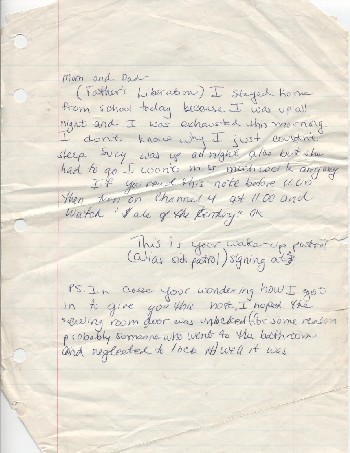 Mom and Dad
(Father's Liberation) I stayed home
from school today because I was up all
night and I was exhausted this morning.
I don't know why I just couldn't
sleep. was up all night also but she
had to go I won't much work anyway
If you read this note before 11:00
then turn on Channel 4 at 11:00 and
watch "Sale of the Century" OK
This is your wake-up patrol
(alias sick patrol) signing off
P.S. In case your wondering how I got
in to give you this note, I hoped the
sewing room door was unlocked (for some reason
probably someone who went to the bathroom
and neglected to lock it) well it was